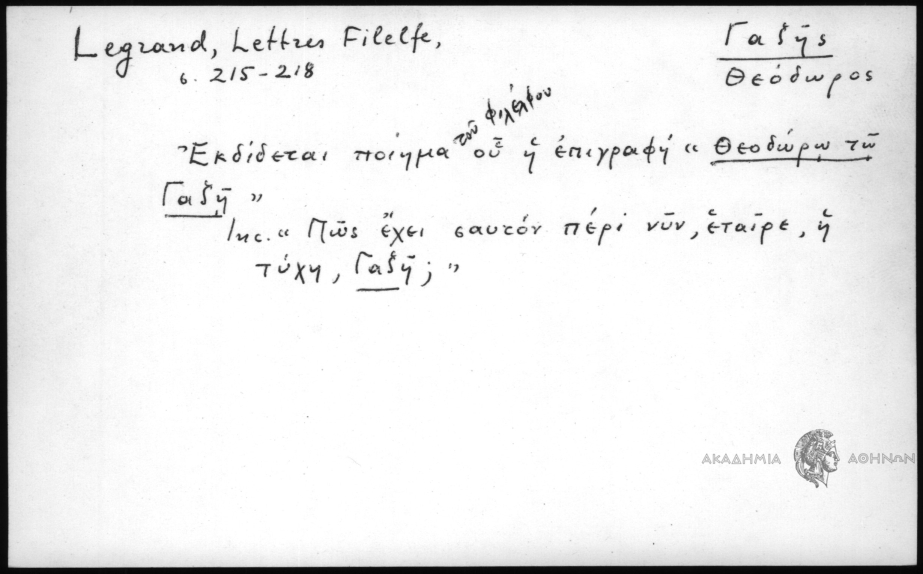 Legrand, Lettres Filelfe,
σ. 215-218
Γαζῆς
Θεόδωρος
Ἐκδίδεται ποίημα τοῦ Φιλέλφου οὗ ἡ ἐπιγραφή « Θεοδώρῳ τῷ
Γαζῇ »
Inc. « Πῶς ἔχει σαυτόν πέρι νῦν, ἑταῖρε, ἡ
τύχη, Γαζῆ; »
ΑΚΑΔΗΜΙΑ ΑΘΗΝΩΝ